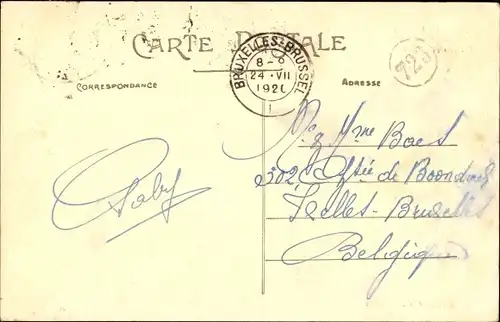 CARTE POSTALE
CORRESPONDANCE
ADRESSE
BRUXELLES-BRUSSEL
8-9
24·VII
192
1
723
Gaby
Mme Boes
302 de
Ixelles-Bruxelles
Belgique